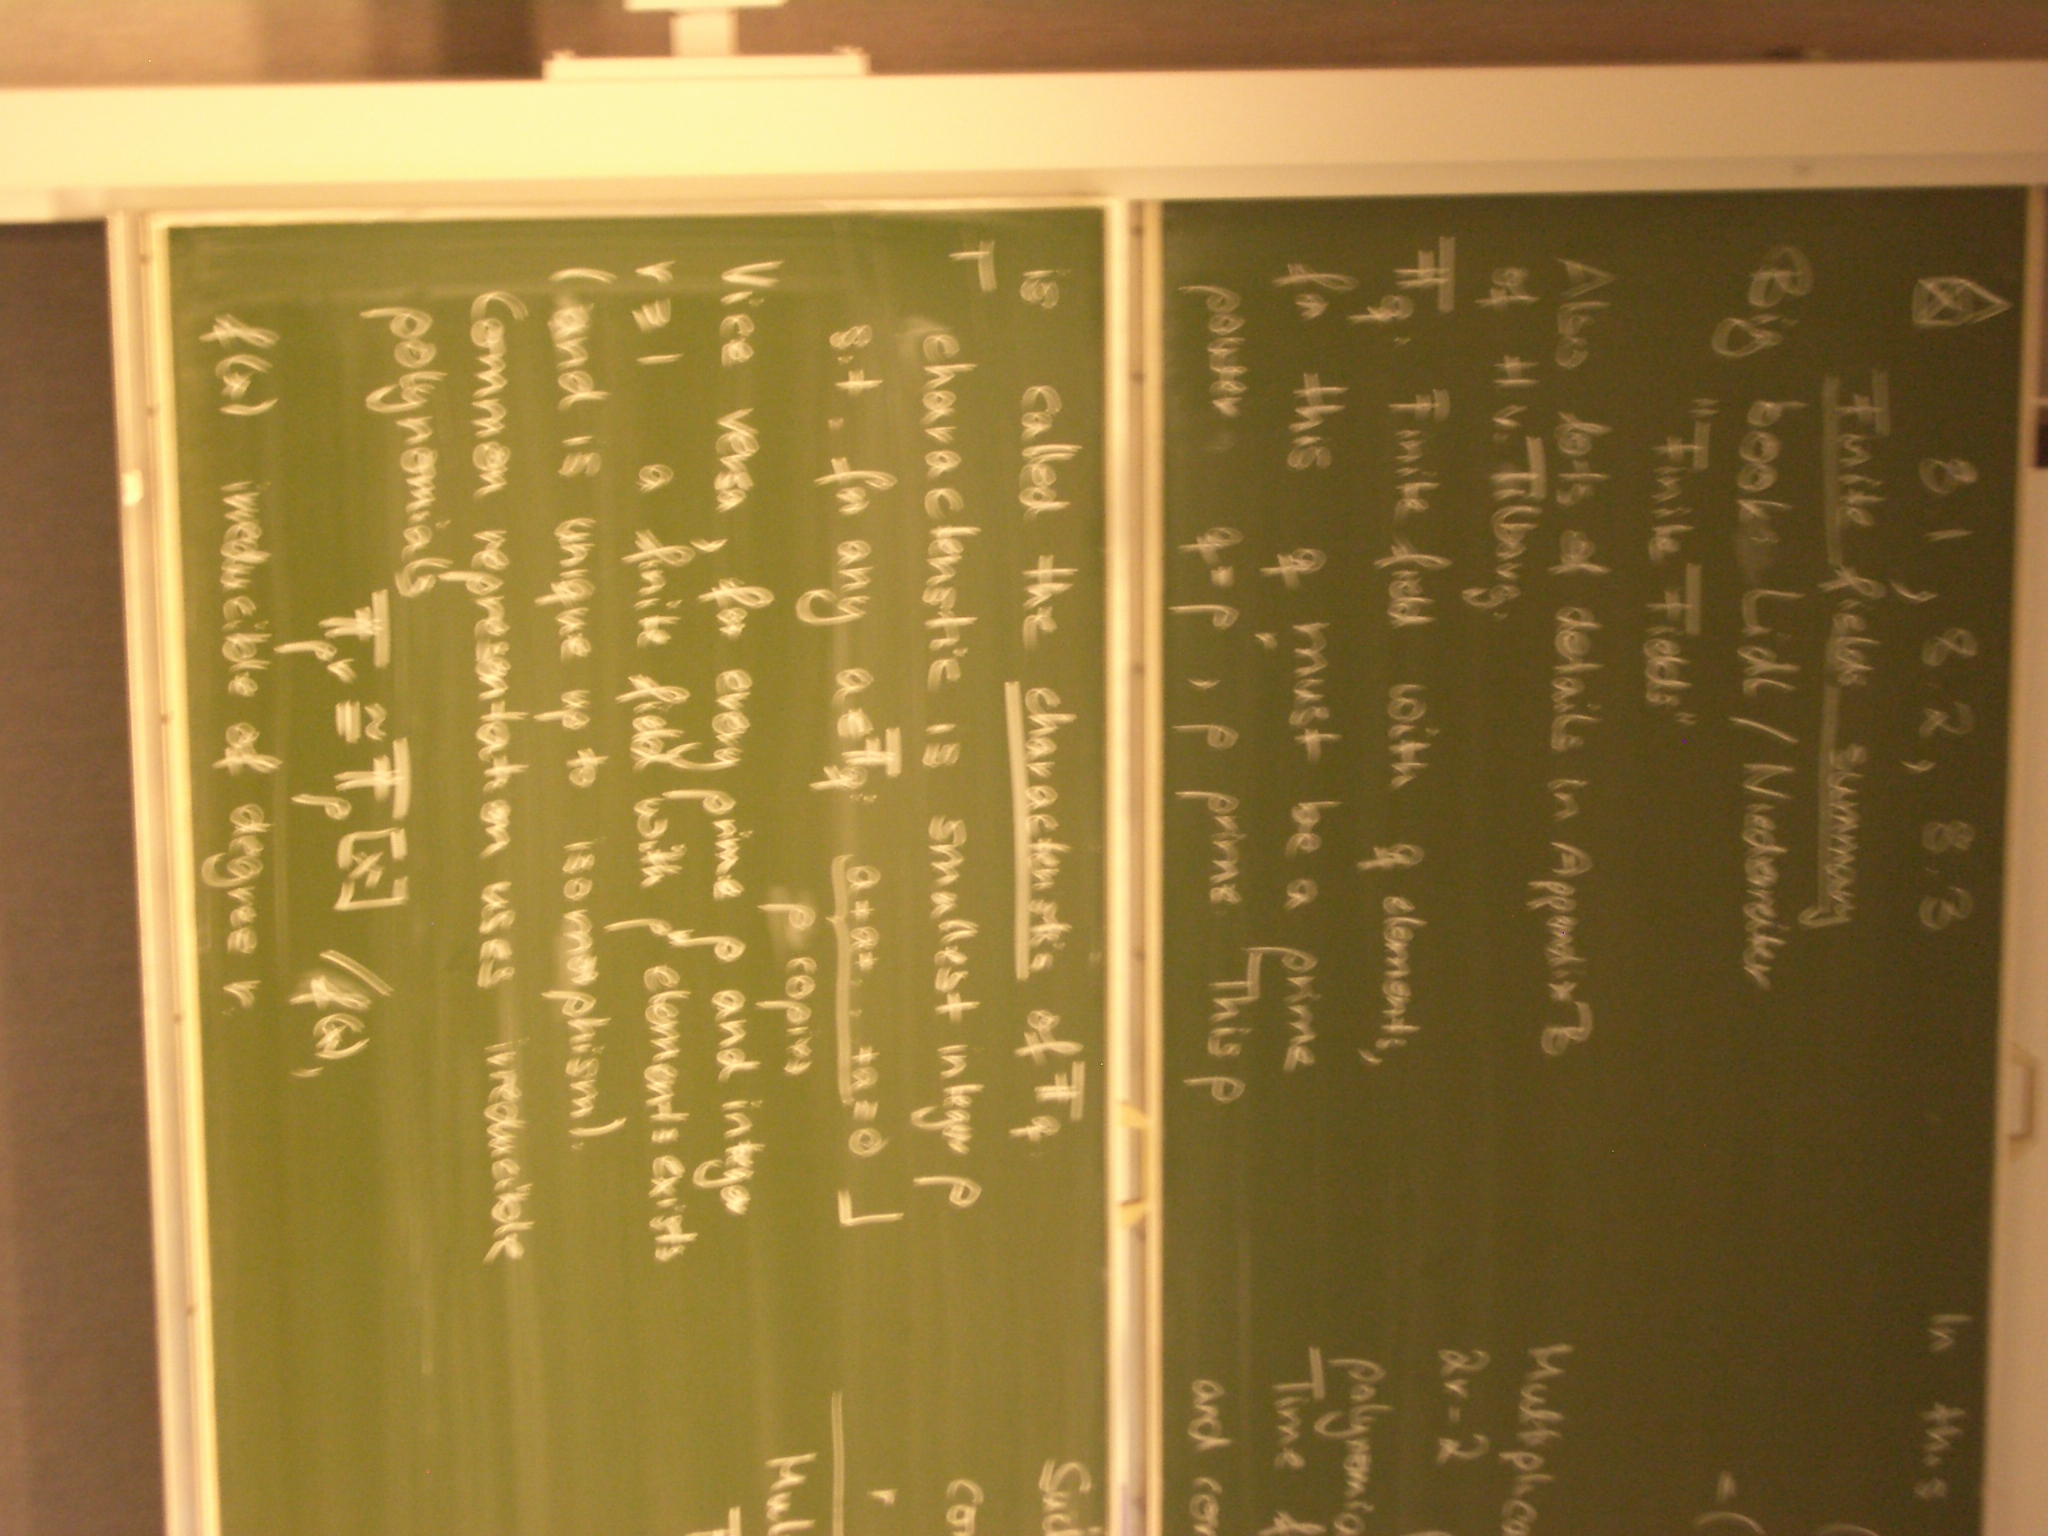 8.1, 8.2, 8.3
Finite fields summary
Big book: Lidl / Niederreiter
"Finite Fields"
Also lots of details in Appendix B
of H v. Tilborg.
𝔽q: Finite field with q elements,
for this q must be a prime
power, q = p^r, p prime. This p
is called the characteristic of 𝔽q.
⌈ characteristic is smallest integer p
s.t. for any a ∈ 𝔽q: a+a+...+a=0 ⌋
p copies
Vice versa, for every prime p and integer
r ≥ 1 a finite field with p^r elements exists
(and is unique up to isomorphism).
Common representation uses irreducible
polynomials
𝔽p^r ≅ 𝔽p[x] /f(x),
f(x) irreducible of degree r
In this
= (
2r-2
Time
and